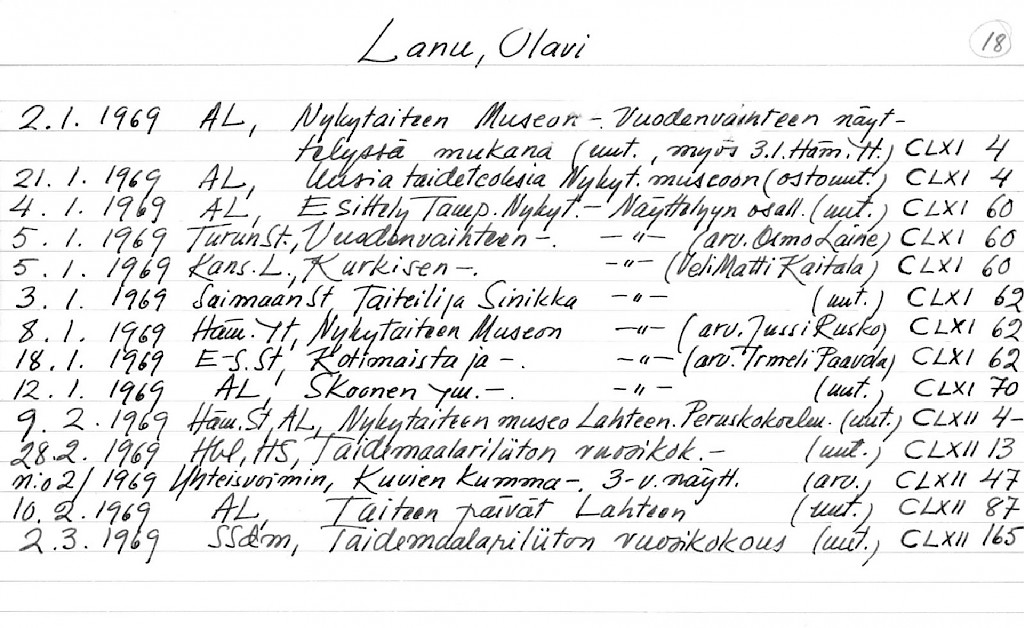 Lanu, Olavi
18
2.1.1969 AL, Nykytaiteen Museon -. Vuodenvaihteen näyt-
telyssä mukana (uut., myös 3.1. Häm. Yt.) CLXI 4
21.1.1969 AL, Uusia taideteoksia Nykyt. museoon (ostouut.) CLXI 4
4.1.1969 AL, Esittely Tamp. Nykyt. - Näyttelyyn osall. (uut.) CLXI 60
5.1.1969 Turun St., Vuodenvaihteen -. -"- (arv. Osmo Laine) CLXI 60
5.1.1969 Kans. L., Kurkisen -. -"- (Veli Matti Kaitala) CLXI 60
3.1.1969 Saimaan St Taiteilija Sinikka -"- (uut.) CLXI 62
8.1.1969 Häm. Yt, Nykytaiteen Museon -"- (arv. Jussi Rusko) CLXI 62
18.1.1969 E-S. St, Kotimaista ja -. -"- (arv. Irmeli Paavola) CLXI 62
12.1.1969 AL, Skoonen ym. -. -"- (uut.) CLXI 70
9.2.1969 Häm. St, AL, Nykytaiteen museo Lahteen. Peruskokoelm. (uut.) CLXII 4-
28.2.1969 Hbl, HS, Taidemaalariliiton vuosikok. - (uut.) CLXII 13
n:o 2/1969 Yhteisvoimin, Kuvien Kumma -. 3-v. näytt. (arv.) CLXII 47
10.2.1969 AL, Taiteen päivät Lahteen (uut.) CLXII 87
2.3.1969 SSdm, Taidemaalariliiton vuosikokous (uut.) CLXII 165